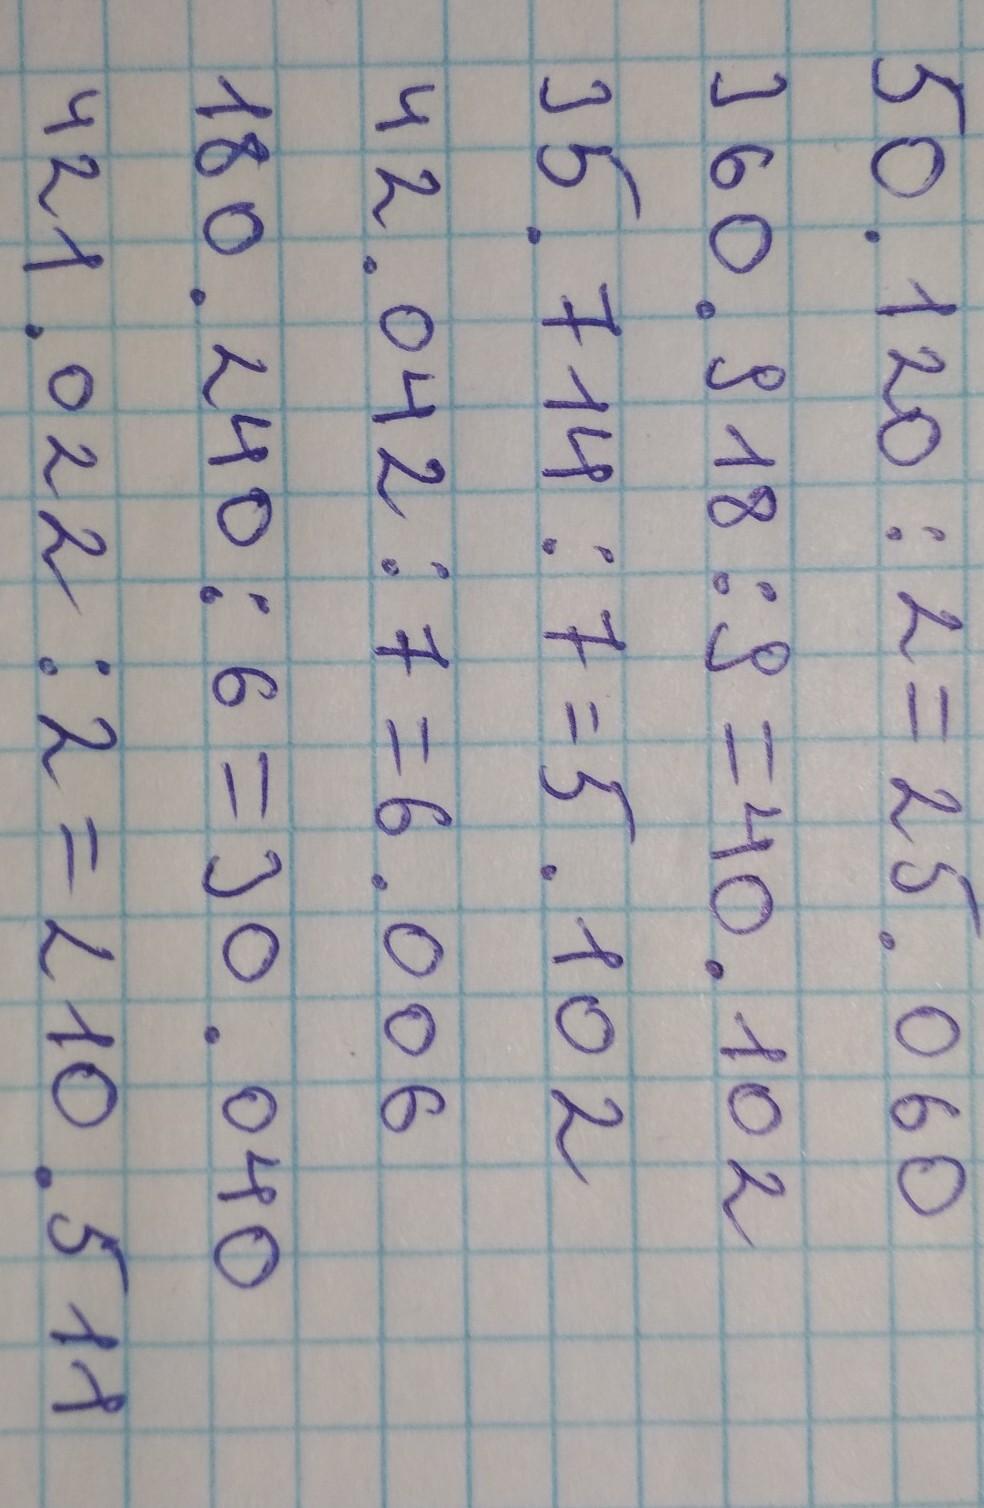 50.120:2=25.060
360.918:9=40.102
35.714:7=5.102
42.042:7=6.006
180.240:6=30.040
421.022:2=210.511